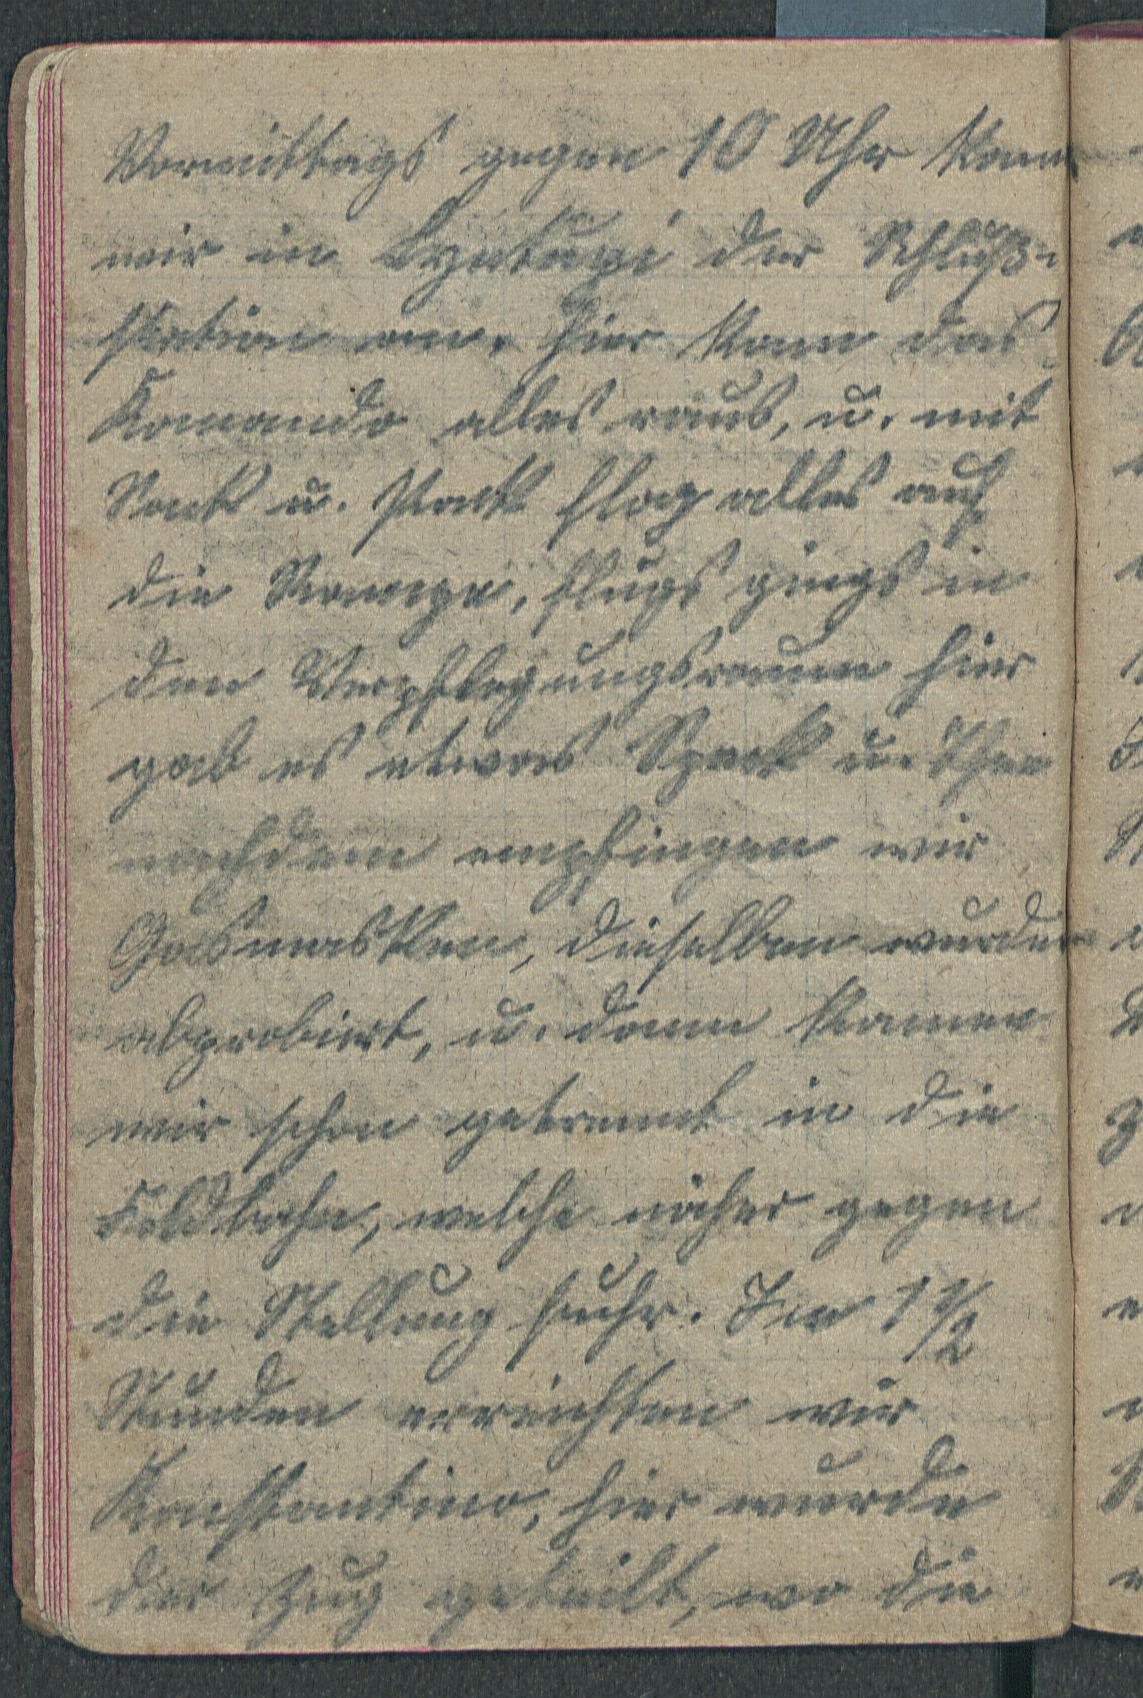 Vormittags gegen 10 Uhr kam
wir in Lyntupi der Schluß-
station an. Hier kam das
Komando alles raus, u. mit
Sack u. Pack flog alles auf
die Rampe, flugs gings in
den Verpflegungsraum hier
gab es etwas Speck u. Thee
nachdem empfingen wir
Gasmasken, dieselben wurden
abprobiert, u. dann kamen
wir schon getrennt in die
Feldbahn, welche näher gegen
die Stellung fuhr. In 1 1/2
Stunden erreichten wir
Konstantino, hier wurde
der Zug geteilt, wo die